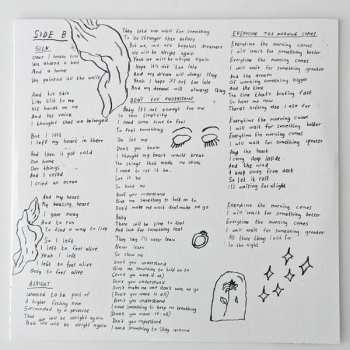 SIDE B
SILK
We shared a bed
And a home
We painted all the walls
And his skin
Like silk to me
His hands on me
And his voice
I thought that we belonged
But I left
I left my heart in there
And then it got cold
Our home
Our things
And I cried
I cried an ocean
And my heart
My heaving heart
I gave away
And to run
To find a way to
So I left
I left to feel alive
Yeah I left
I left to feel alive
Only to feel alive
ALRIGHT
Someone to be part of
A higher fishing now
Surrounded by a universe
That we will be alright again
Yeah we will be alright again
They told me wait for something
To be stronger than before
But we, we are hopeless dreamers
We will be alright again
Yeah we will be alright again
Hope it's not too late
And my dream will always stay
Yeah I hope it's not too late
And my dreams will always stay
DON'T YOU UNDERSTAND
Baby it's not enough for me
This simplicity
I need some time to feel
To feel something
So let me
Don't you know
I thought my heart would break
The things that made me shine
I need to let it be
Let it be
So hold me
Don't you understand
Give me something to hold on to
Don't make me wait don't make me go
Baby
There will be time to feel
And look for something real
They say it'll never
Never
So show me
Don't you understand
Give me something to hold on to
(Don't you want it all)
Don't you understand
Don't make me wait don't make me go
(Don't you want it all)
Don't you understand
I need something to keep me breathing
(Don't you want it all)
Don't you understand
I need something to stay around
EVERYTIME THE MORNING COMES
Everytime the morning comes
I will wait for something better
Everytime the morning comes
I will wait for something greater
And the dream
Of meaning something bigger
And the time
The time that's beating fast
So hear me now
There's nothing that I ask for
Everytime the morning comes
I will wait for something better
Everytime the morning comes
I will wait for something greater
And the heart
I long deep inside
And the wind
I keep away from dark
So let it roll
It's waiting for alright
Everytime the morning comes
I will wait for something better
Everytime the morning comes
I will wait for something greater
All those things I will do
In the night